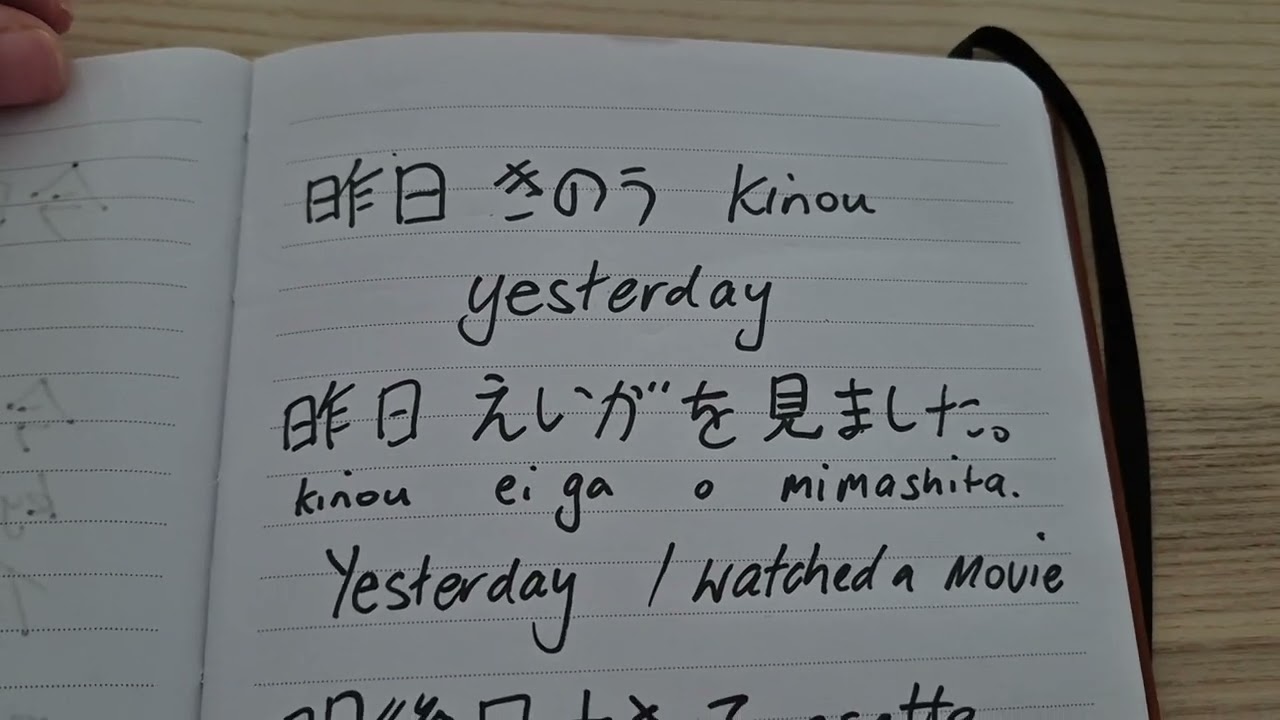 昨日 きのう kinou
yesterday
昨日 えいがを見ました。
kinou eiga o mimashita.
Yesterday I watched a movie